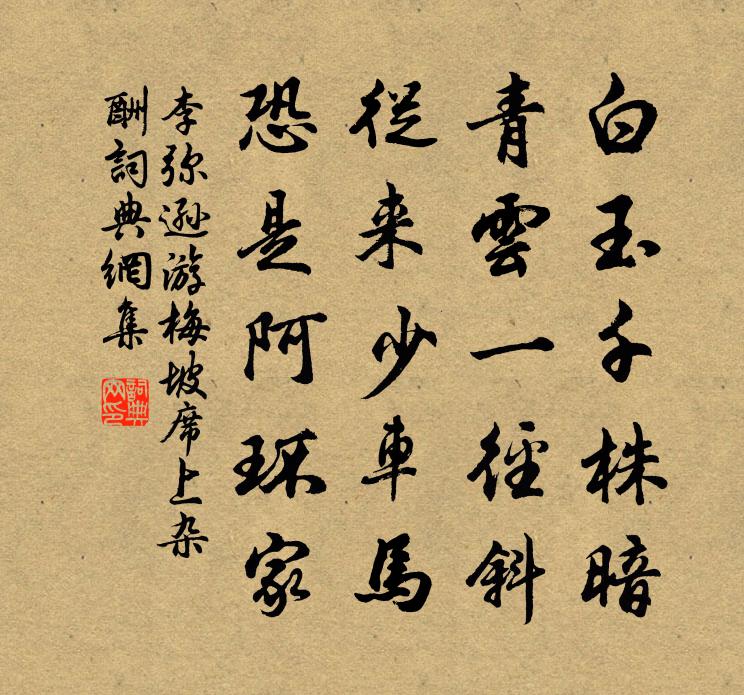 白玉千株暗
青雲一徑斜
從来少車馬
恐是阿环家
李弥遜游梅坡席上杂
酬詞典網集
詞典
网印